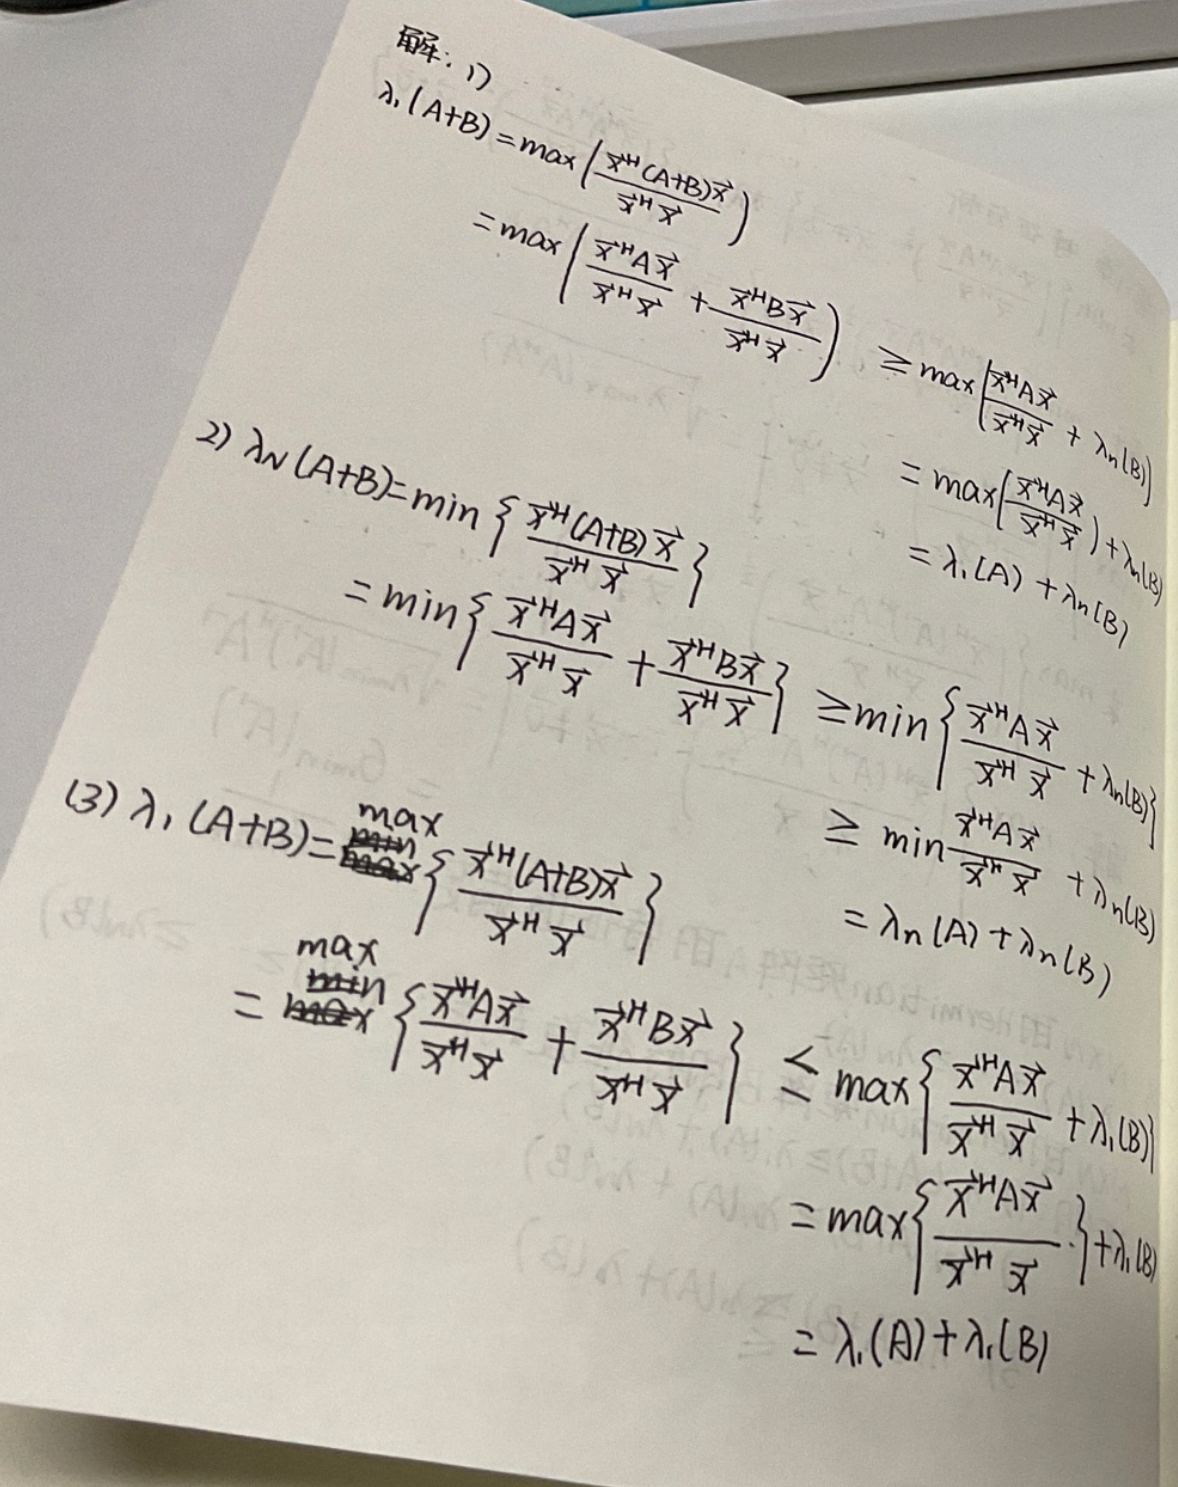 解：1)
λ₁(A+B)=max(x⃗ᴴ(A+B)x⃗ / x⃗ᴴx⃗)
=max(x⃗ᴴAx⃗ / x⃗ᴴx⃗ + x⃗ᴴBx⃗ / x⃗ᴴx⃗) ≥ max(x⃗ᴴAx⃗ / x⃗ᴴx⃗ + λn(B))
= max(x⃗ᴴAx⃗ / x⃗ᴴx⃗)+λn(B)
= λ₁(A)+λn(B)
2) λN(A+B)=min{x⃗ᴴ(A+B)x⃗ / x⃗ᴴx⃗}
=min{x⃗ᴴAx⃗ / x⃗ᴴx⃗ + x⃗ᴴBx⃗ / x⃗ᴴx⃗} ≥min{x⃗ᴴAx⃗ / x⃗ᴴx⃗ + λn(B)}
≥ min x⃗ᴴAx⃗ / x⃗ᴴx⃗ +λn(B)
= λn(A)+λn(B)
(3) λ₁(A+B)=max{x⃗ᴴ(A+B)x⃗ / x⃗ᴴx⃗}
= max{x⃗ᴴAx⃗ / x⃗ᴴx⃗ + x⃗ᴴBx⃗ / x⃗ᴴx⃗} ≤ max{x⃗ᴴAx⃗ / x⃗ᴴx⃗ +λ₁(B)}
=max{x⃗ᴴAx⃗ / x⃗ᴴx⃗}+λ₁(B)
= λ₁(A)+λ₁(B)